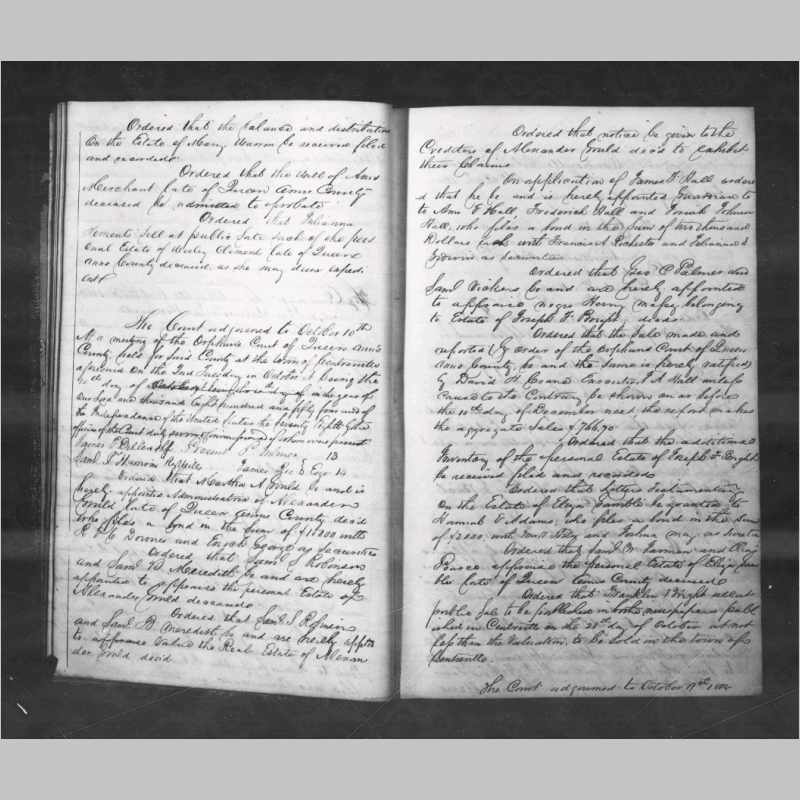 Ordered that the balance and distribution
On the Estate of Mary Warren be received filed
and recorded
Ordered that the Will of Ann
Merchant late of Queen Anns County
deceased be admitted to probate
Ordered that Julianna
Clements Sell at public Sale such of the pers
onal Estate of Clement late of Queen
Anns County deceased, as she may deem expedi
ent
The Court adjourned to October 10th
At a meeting of the Orphans Court of Queen Ann's
County held for said County at the town of Centreville
aforesaid on the 2nd Tuesday in October it being the
10th day of October in the year of
our Lord one thousand Eight hundred and fifty four and of
the Independence of the United States the Seventy Eighth &
of said Court duly were present
Present
Saml T Harrison
Ordered that Martha A Gould be and is
hereby appointed Administratrix of Alexander
Gould late of Queen Anns County decd
who files a bond in the Sum of with
Downes and George as Securities
Ordered that Saml S Robinson
and Saml W Meredith be and are hereby
appointed to appraise the personal Estate of
Alexander Gould deceased
Ordered that Saml S Robinson
and Saml W Meredith be and are hereby appted
to appraise & value the Real Estate of Alexan
der Gould decd
Ordered that notice be given to the
Creditors of Alexander Gould decd to exhibit
their Claims
On application of James F Hall ordere
d that he be and is hereby appointed Guardian to
to Ann E Hall, Frederick Hall and Josiah Johnson
Hall, who files a bond in the Sum of two thousand
Dollars Each with Francis A Rochester and
Godwin as Securities
Ordered that Geo C Palmer and
Saml Vickers be and are hereby appointed
to appraise negro Henry belonging
to Estate of Joseph F Bright decd
Ordered that the Sale made and
reported by order of the Orphans Court of Queen
Anns County be and the same is hereby ratified
by David H Crane Executor J A Hall unless
Cause to the Contrary be shown on or before
the 10th day of December next the report makes
the aggregate Sales $766.70
Ordered that the additional
Inventory of the personal Estate of Joseph F Bright
be received filed and recorded
Ordered that Letters Testamentary
On the Estate of Eliza Gamble be granted to
Hannah V Adams, who files a bond in the Sum
of $2000, with and Joshua as Securities
Ordered that Saml W Larman and
Pearce appraise the personal Estate of Eliza Gam
ble late of Queen Anns County deceased
Ordered that Franklin Wright sell at
public Sale to be published in both newspapers publ
ished in Centreville on the 31st day of October at not
less than the Valuation, to be sold in the town of
Centreville.
The Court adjourned to October 17th